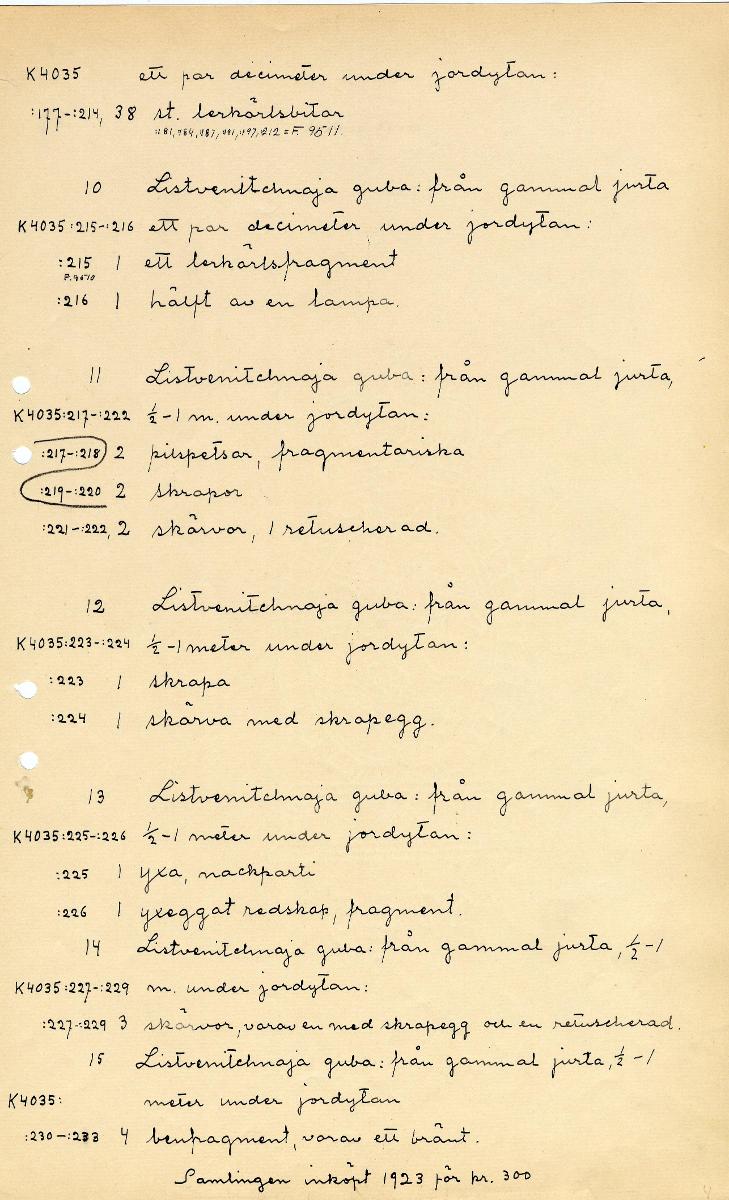 K4035 ett par decimeter under jordytan:
:177-:214, 38 st. lerkärlsbitar
:181, :184, :187, :191, :197, :212 = F. 9511.
10 Listvenitchnaja guba: från gammal jurta
K4035:215-:216 ett par decimeter under jordytan:
:215 1 ett lerkärlsfragment
F. 9510
:216 1 hälft av en lampa.
11 Listvenitchnaja guba: från gammal jurta,
K4035:217-:222 ½-1 m. under jordytan:
:217-:218 2 pilspetsar, fragmentariska
:219-:220 2 skrapor
:221-:222, 2 skärvor, 1 retuscherad.
12 Listvenitchnaja guba: från gammal jurta,
K4035:223-:224 ½-1 meter under jordytan:
:223 1 skrapa
:224 1 skärva med skrapegg.
13 Listvenitchnaja guba: från gammal jurta,
K4035:225-:226 ½-1 meter under jordytan:
:225 1 yxa, nackparti
:226 1 yxeggat redskap, fragment.
14 Listvenitchnaja guba: från gammal jurta, ½-1
K4035:227-:229 m. under jordytan:
:227-:229 3 skärvor, varav en med skrapegg och en retuscherad.
15 Listvenitchnaja guba: från gammal jurta, ½-1
K4035: meter under jordytan
:230-:233 4 benfragment, varav ett bränt.
Samlingen inköpt 1923 för kr. 300